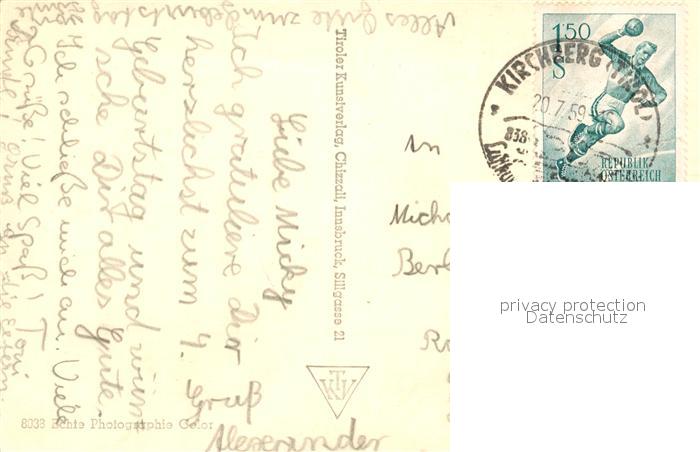 Alles Gute zum Geburtstag
Liebe Micky
Ich gratuliere Dir
herzlichst zum 4.
Geburtstag und wün
sche Dir alles Gute.
Gruß
Alexander
Ich schließe mich an. Viele
Grüße! Viel Spaß! Toni
Gruss an die Eltern.
Tiroler Kunstverlag, Chizzali, Innsbruck, Sillgasse 21
TKV
8038 Echte Photographie Color
An
Mich
Berl
R
1.50
S
REPUBLIK
ÖSTERREICH
KIRCHBERG (TIROL)
20.7.59
privacy protection
Datenschutz